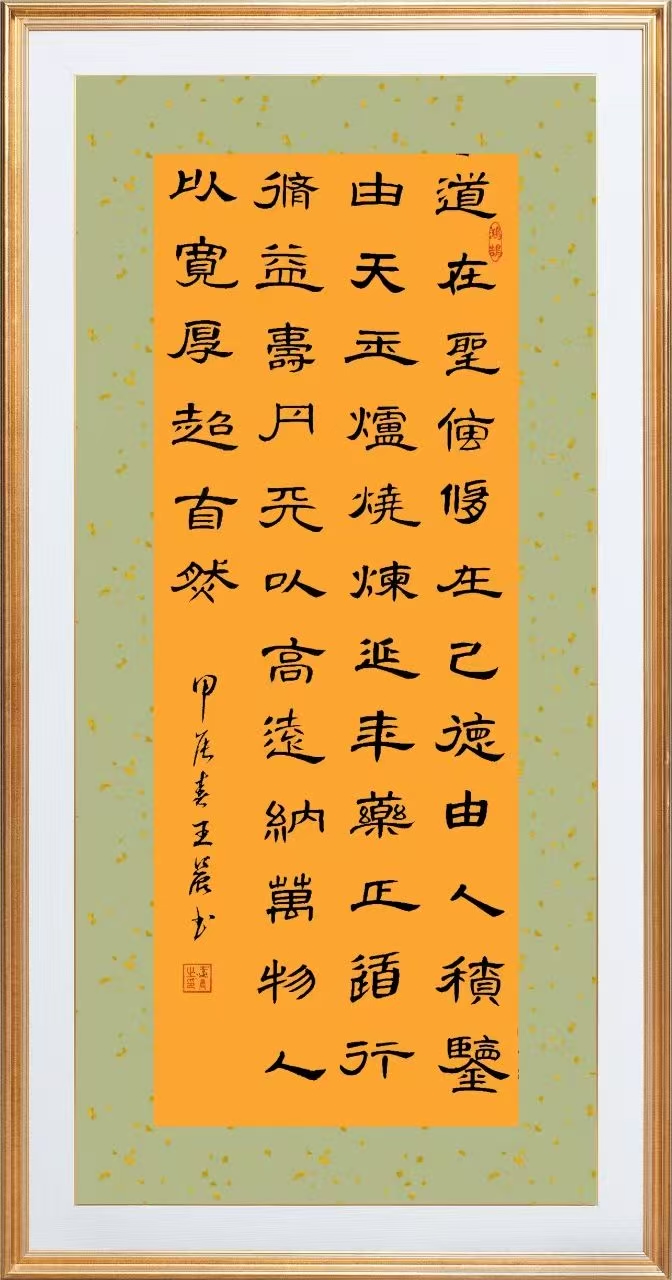 道在聖傳修在己德由人積鑒
由天玉爐燒煉延年藥正道行
脩益壽丹天以高遠納萬物人
以寬厚超自然
甲辰春王书
鴻鵠